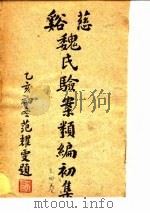 慈谿
魏氏驗案類編初集
乙亥
范耀雯題